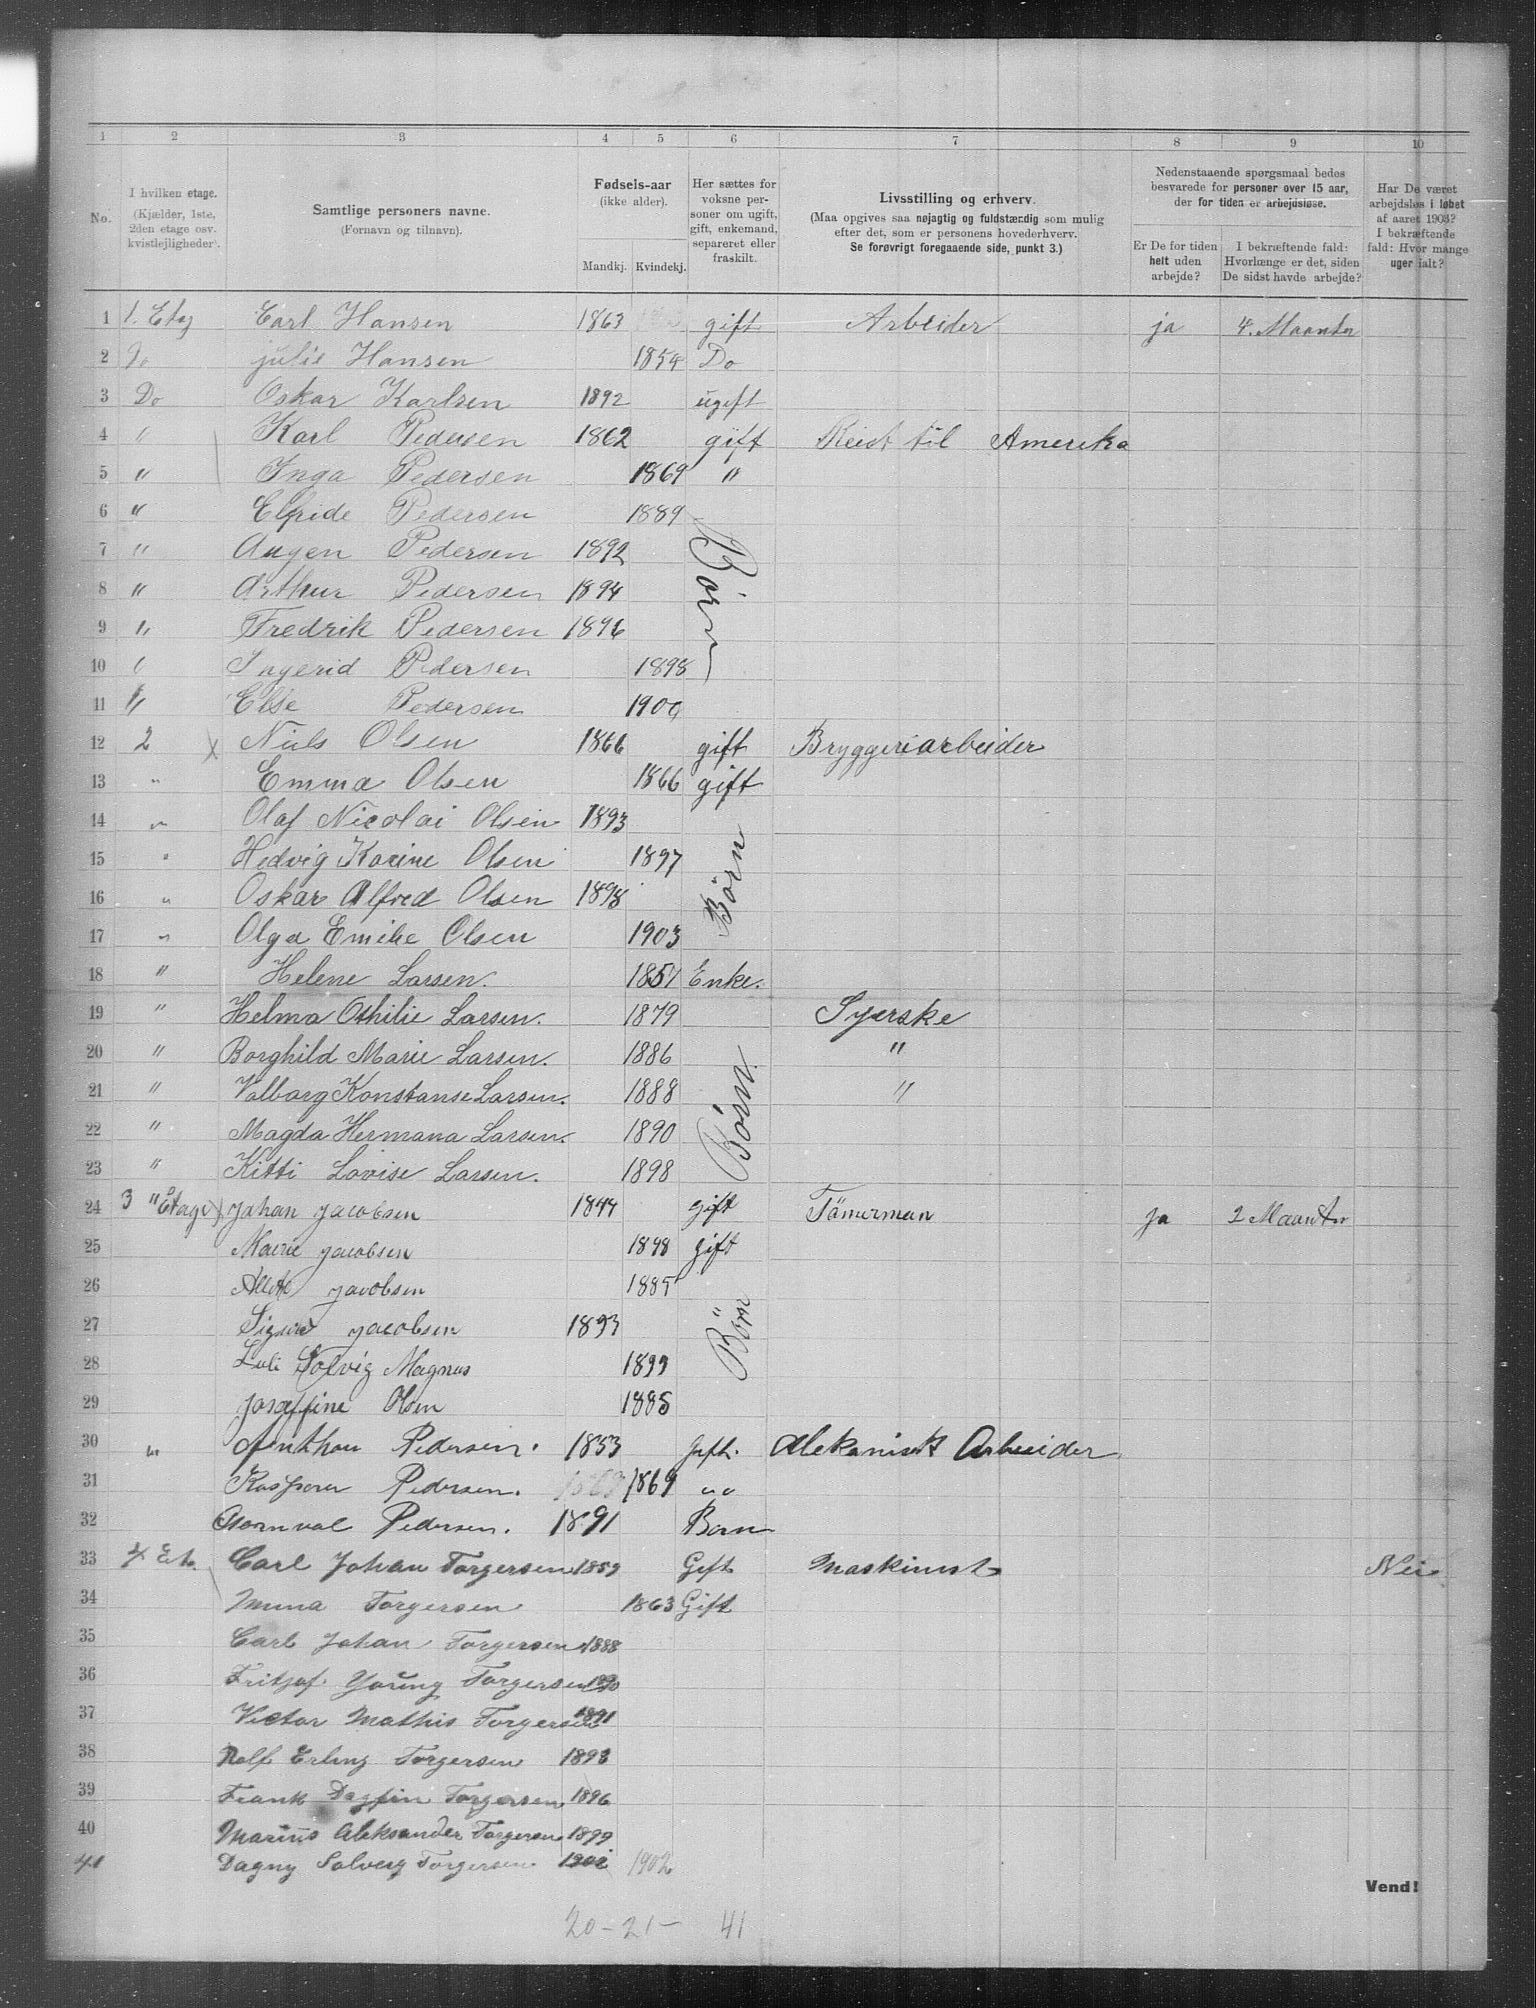 1 2 3 4 5 6 7 8 9 10
No.
I hvilken etage.
(Kjælder, 1ste,
2den etage osv.
kvistlejligheder).
Samtlige personers navne.
(Fornavn og tilnavn).
Fødsels-aar
(ikke alder).
Mandkj. Kvindekj.
Her sættes for
voksne per-
soner om ugift,
gift, enkemand,
separeret eller
fraskilt.
Livsstilling og erhverv.
(Maa opgives saa nøjagtig og fuldstændig som mulig
efter det, som er personens hovederhverv.
Se forøvrigt foregaaende side, punkt 3.)
Nedenstaaende spørgsmaal bedes
besvarede for personer over 15 aar,
der for tiden er arbejdsløse.
Er De for tiden
helt uden
arbejde?
I bekræftende fald:
Hvorlænge er det, siden
De sidst havde arbejde?
Har De været
arbejdsløs i løbet
af aaret 1903?
I bekræftende
fald: Hvor mange
uger ialt?
1 1. Etg Carl Hansen 1863 gift Arbeider ja 4. Maanter
2 Do julie Hansen 1854 Do
3 Do Oskar Karlsen 1892 ugift
4 " Karl Pedersen 1862 gift Reist til Amerika
5 " Inga Pedersen 1869 "
6 " Elfride Pedersen 1889
7 " Augen Pedersen 1892 Börn
8 " Arthur Pedersen 1894
9 " Fredrik Pedersen 1896
10 " Ingerid Pedersen 1898
11 " Else Pedersen 1900
12 2 X Niels Olsen 1866 gift Bryggeriarbeider
13 " Emma Olsen 1866 gift
14 " Olaf Nicolai Olsen 1893
15 " Hedvig Karine Olsen 1897 Børn
16 " Oskar Alfred Olsen 1898
17 " Olga Emilie Olsen 1903
18 " Helene Larsen. 1857 Enke.
19 " Helma Othilie Larsen. 1879 Syerske
20 " Borghild Marie Larsen. 1886 "
21 " Valborg Konstanse Larsen. 1888 "
22 " Magda Hermana Larsen. 1890 Børn.
23 " Kitti Lovise Larsen. 1898
24 3 " Etage Johan Jacobsen 1844 gift Tömerman ja 2 Maanter
25 Marie Jacobsen 1848 gift
26 Jacobsen 1885
27 Sigurd Jacobsen 1893 Börn
28 Luli Solvig Magnus 1899
29 Josefine Olsen 1885
30 " Anthon Pedersen. 1853 Gift. Mekanisk Arbeider
31 Pedersen. 1869 "
32 Pedersen. 1891 Barn
33 4 Eta. Carl Johan Torgersen 1859 Gift Maskinist Nei
34 Mina Torgersen 1863 Gift
35 Carl Johan Torgersen 1888
36 Fritjof Young Torgersen 1890
37 Victor Mathis Torgersen 1891
38 Rolf Erling Torgersen 1893
39 Frank Dagfin Torgersen 1896
40 Marius Aleksander Torgersen 1899
41 Dagny Solveig Torgersen 1902 1902
Vend!
20-21- 41